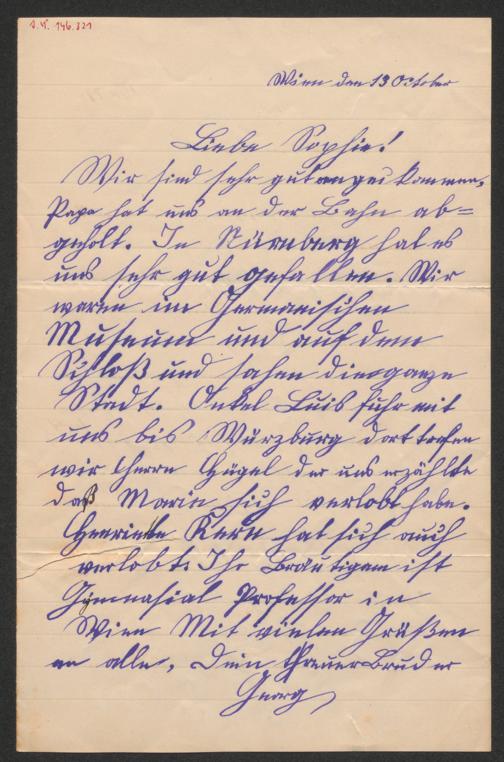 J.N. 146.321
Wien den 13 October
Liebe Sophie!
Wir sind sehr gut angekommen,
Papa hat uns an der Bahn ab=
geholt. In Nürnberg hat es
uns sehr gut gefallen. Wir
waren im Germanischen
Museum und auf dem
Schloß und sahen die ganze
Stadt. Onkel Luis fuhr mit
uns bis Würzburg dort trafen
wir Herrn Hügel der uns erzählte
daß Marie sich verlobt habe.
Henriette Kern hat sich auch
verlobt. Ihr Bräutigam ist
Gymnasial Professor in
Wien Mit vielen Grüßen
an alle, Dein treuer Bruder
Georg